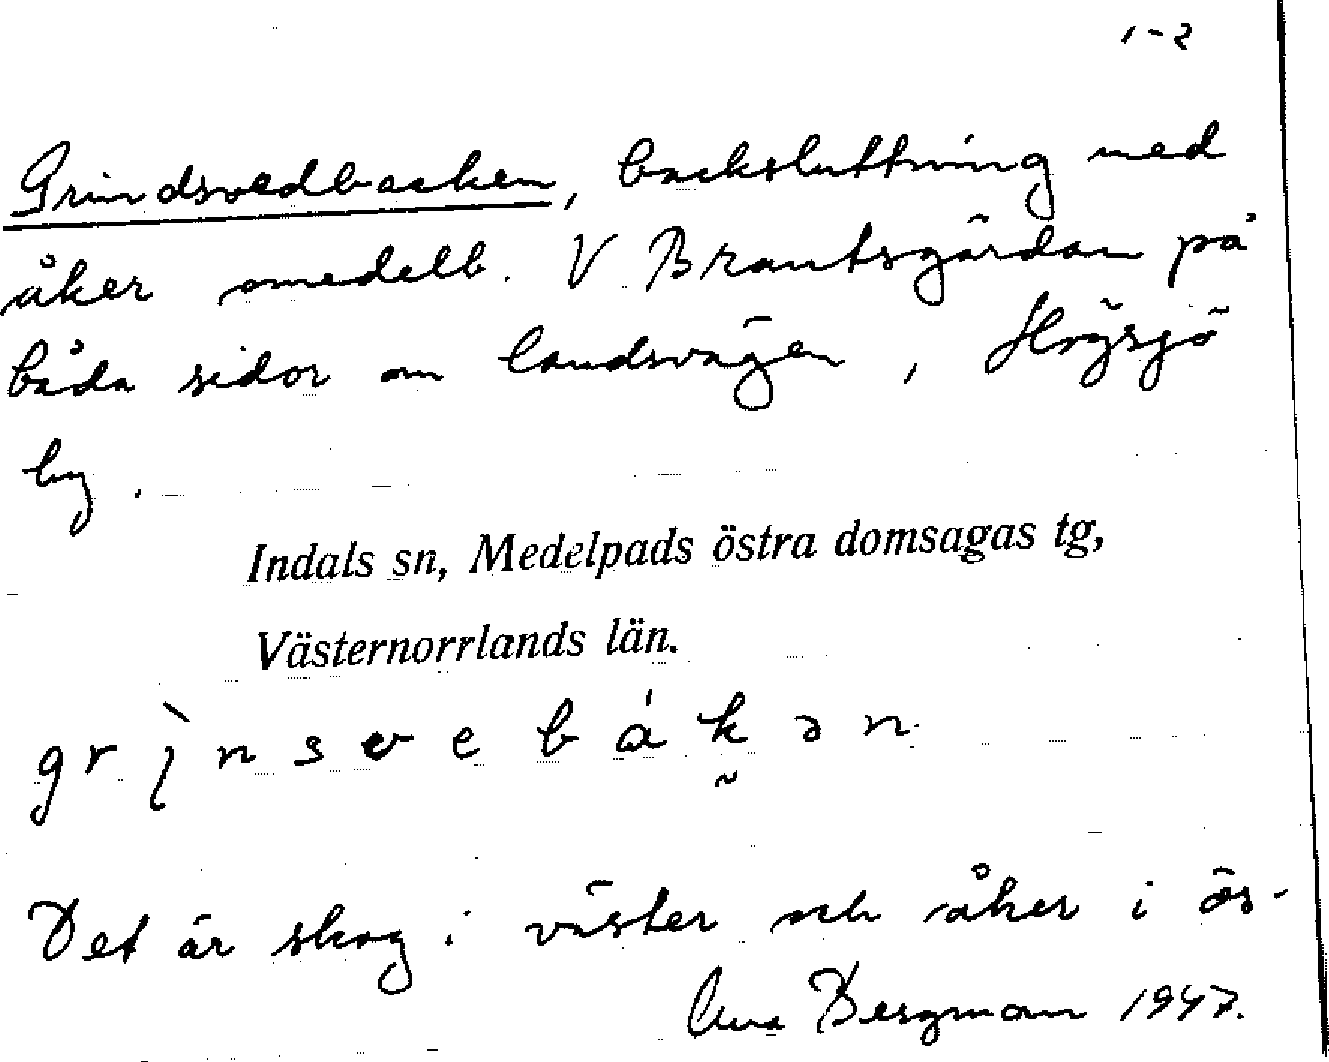 1-2
Grindsvedbacken, backsluttning med
åker omedelb. V Brantsgården på
båda sidor om landsvägen, Högsjö
by.
Indals sn, Medelpads östra domsagas tg,
Västernorrlands län.
grı̨̀nsvebákən
Det är skog i väster och åker i ös-
Bergman 1947.